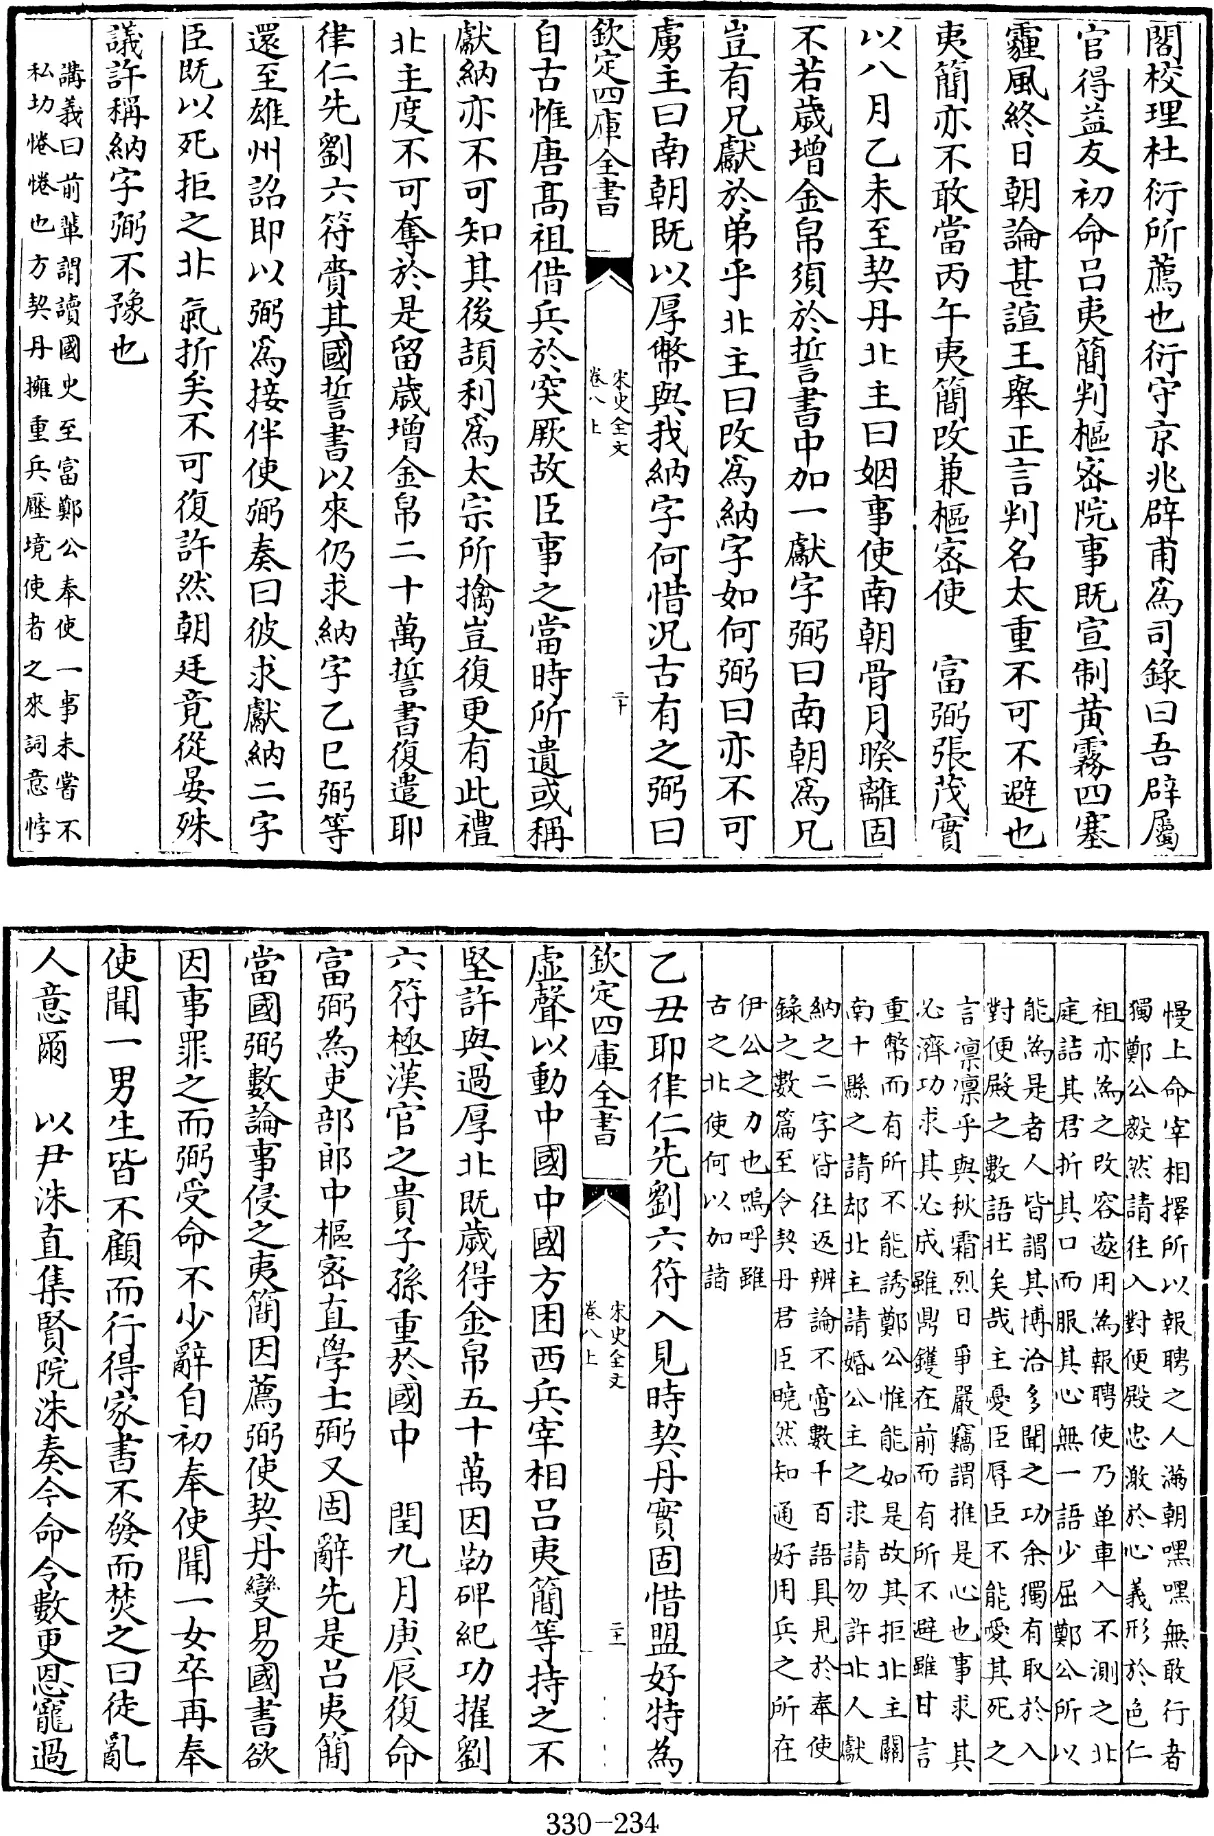 閣校理杜衍所薦也衍守京兆辟甫爲司錄曰吾辟屬
官得益友初命呂夷簡判樞密院事既宣制黃霧四塞
霾風終日朝論甚諠王舉正言判名太重不可不避也
夷簡亦不敢當丙午夷簡改兼樞密使　富弼張茂實
以八月乙未至契丹北主曰姻事使南朝骨月睽離固
不若歲增金帛須於誓書中加一獻字弼曰南朝爲兄
豈有兄獻於弟乎北主曰改爲納字如何弼曰亦不可
虜主曰南朝既以厚幣與我納字何惜況古有之弼曰
欽定四庫全書
宋史全文
卷八上
二十
自古惟唐髙祖借兵於突厥故臣事之當時所遺或稱
獻納亦不可知其後頡利爲太宗所擒豈復更有此禮
北主度不可奪於是留歲增金帛二十萬誓書復遣耶
律仁先劉六符賫其國誓書以來仍求納字乙巳弼等
還至雄州詔即以弼爲接伴使弼奏曰彼求獻納二字
臣既以死拒之北氣折矣不可復許然朝廷竟從晏殊
議許稱納字弼不豫也
講義曰前輩謂讀國史至富鄭公奉使一事未嘗不
私切惓惓也方契丹擁重兵壓境使者之來詞意悖
慢上命宰相擇所以報聘之人滿朝嘿嘿無敢行者
獨鄭公毅然請往入對便殿忠激於心義形於色仁
祖亦爲之改容遂用爲報聘使乃单車入不測之北
庭詰其君折其口而服其心無一語少屈鄭公所以
能爲是者人皆謂其博洽多聞之功余獨有取於入
對便殿之數語壯矣哉主憂臣辱臣不能愛其死之
言凛凛乎與秋霜烈日爭嚴竊謂推是心也事求其
必濟功求其必成雖鼎鑊在前而有所不避雖甘言
重幣而有所不能誘鄭公惟能如是故其拒北主關
南十縣之請却北主請婚公主之求請勿許北人獻
納之二字皆往返辨論不啻數千百語具見於奉使
録之數篇至今契丹君臣曉然知通好用兵之所在
伊公之力也嗚呼雖
古之北使何以加諸
乙丑耶律仁先劉六符入見時契丹實固惜盟好特為
欽定四庫全書
宋史全文
卷八上
二十一
虛聲以動中國中國方困西兵宰相呂夷簡等持之不
堅許與過厚北既歲得金帛五十萬因勒碑紀功擢劉
六符極漢官之貴子孫重於國中　閏九月庚辰復命
富弼為吏部郎中樞密直學士弼又固辭先是呂夷簡
當國弼數論事侵之夷簡因薦弼使契丹變易國書欲
因事罪之而弼受命不少辭自初奉使聞一女卒再奉
使聞一男生皆不顧而行得家書不發而焚之曰徒亂
人意爾　以尹洙直集賢院洙奏今命令數更恩寵過
330-234